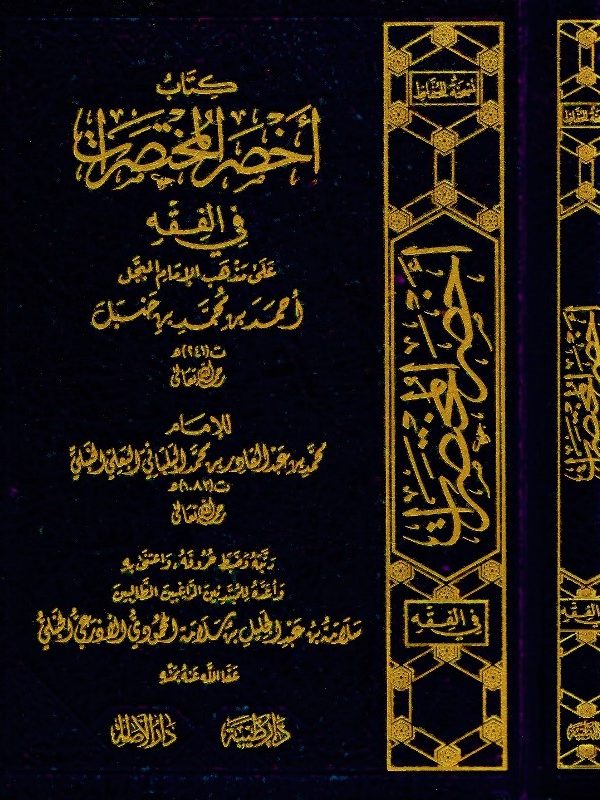 كِتَابُ
أَخْصَرُ المُخْتَصَرَاتِ
فِي الفِقْهِ
عَلَى مَذْهَبِ الإِمَامِ المُبَجَّلِ
أَحْمَدَ بنِ مُحَمَّدِ بنِ حَنْبَلَ
ت(٢٤١)ه
رحمه الله تعالى
للإمام
محمد بن عبد القادر بن محمد البلباني البعلي الحنبلي
ت(١٠٨٣)ه
رحمه الله تعالى
رتبه وضبط حروفه، واعتنى به
وأعده للمبتدئين الراغبين الطالبين
سلامة بن عبد الجليل بن سلامة المحمودي الأذرعي الحنبلي
عفا الله عنه بمنه
دار طيبة
دار الأطلس
للحفاظ
أخصر المختصرات
في الفقه
للحفاظ
أخصر المختصرات
في الفقه
دار طيبة